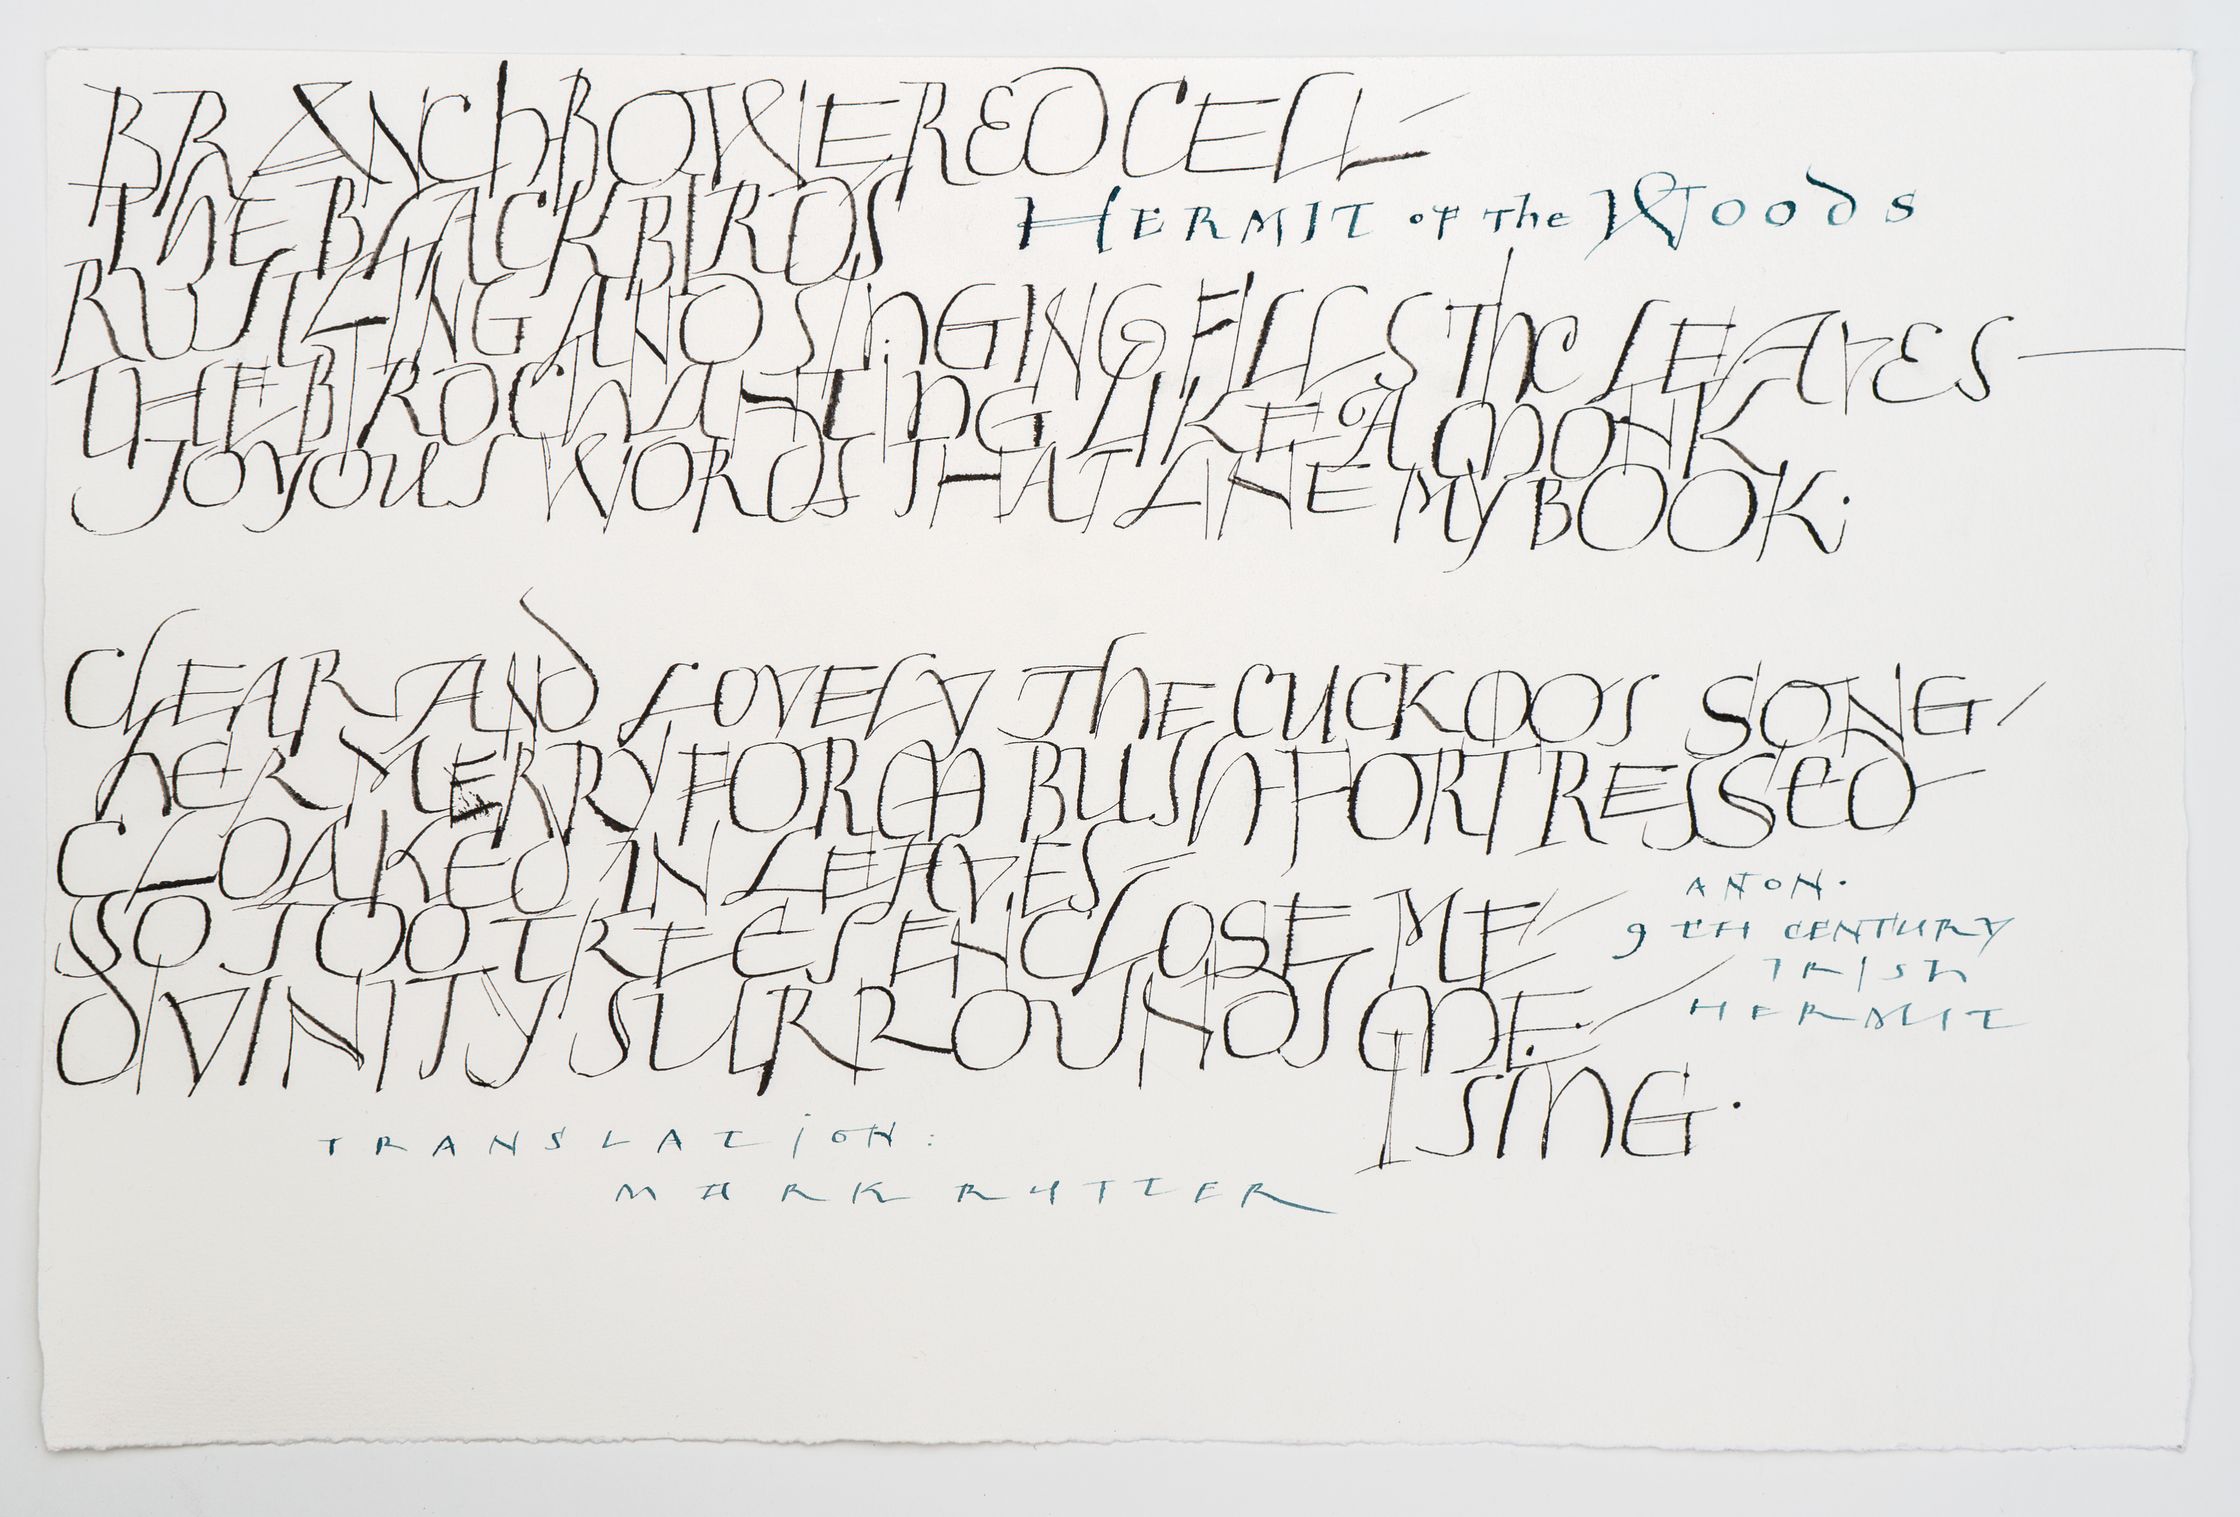 BRANChBOWERED CELL —
THE BLACKBIRDS
HERMIT of The WOODS
RUSTLING AND SINGING FILLS The LEAVES —
THE BIRD CHANTING LIKE A MONK
JOYOUS WORDS THAT LINE MY BOOK;
ClEAR AND LOVELY The CUCKOOS SONG —
hER MERRY FORM BUSh FORTRESSED —
CLOAKED IN LEAVES —
SO TOO TREES ENCLOSE ME —
ANON.
9TH CENTURY
IRISh
HERMIT
DIVINITY SURROUNDS ME. —
I SING.
TRANSLATION:
MARK RUTTER